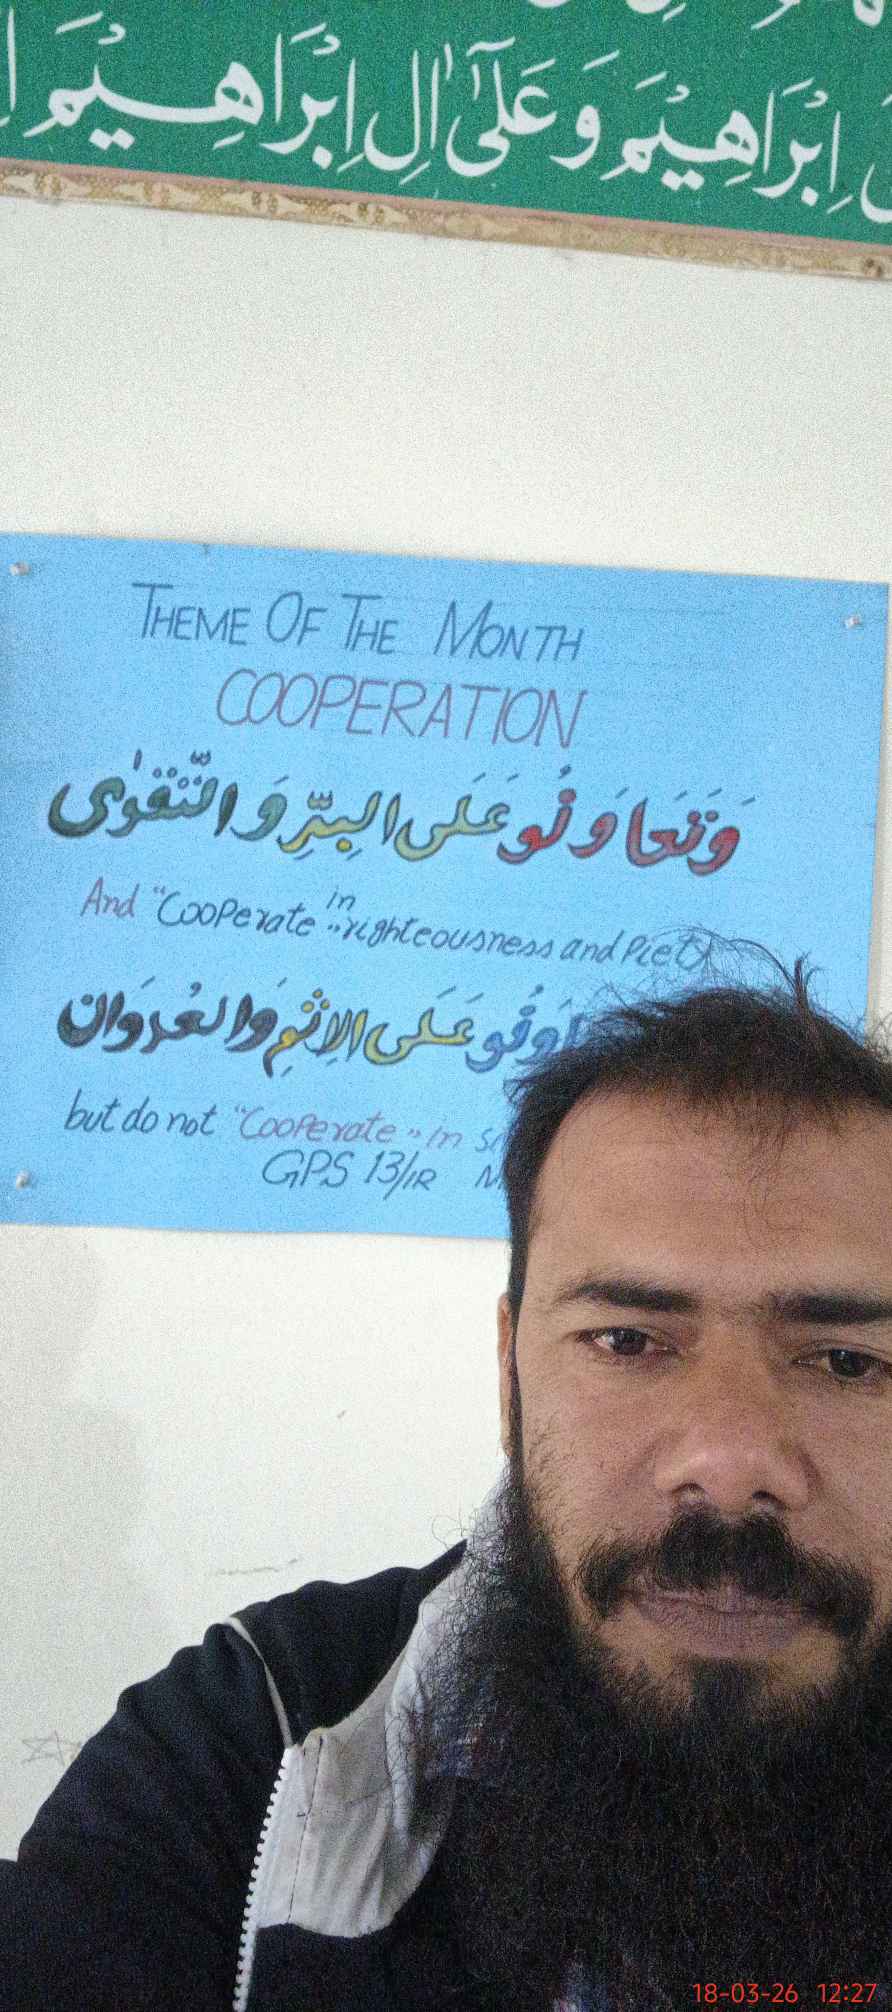 اِبْرَاهِيْمَ وَعَلٰٓى اٰلِ اِبْرَاهِيْمَ
THEME OF THE MONTH
COOPERATION
وَتَعَاوَنُو عَلَى البِرِّ وَ التَّقْوٰى
in
And "Cooperate" righteousness and Piety
عَلَى الاِثْمِ وَالعُدوَان
but do not "Cooperate" in
GPS 13/1R
18-03-26 12:27